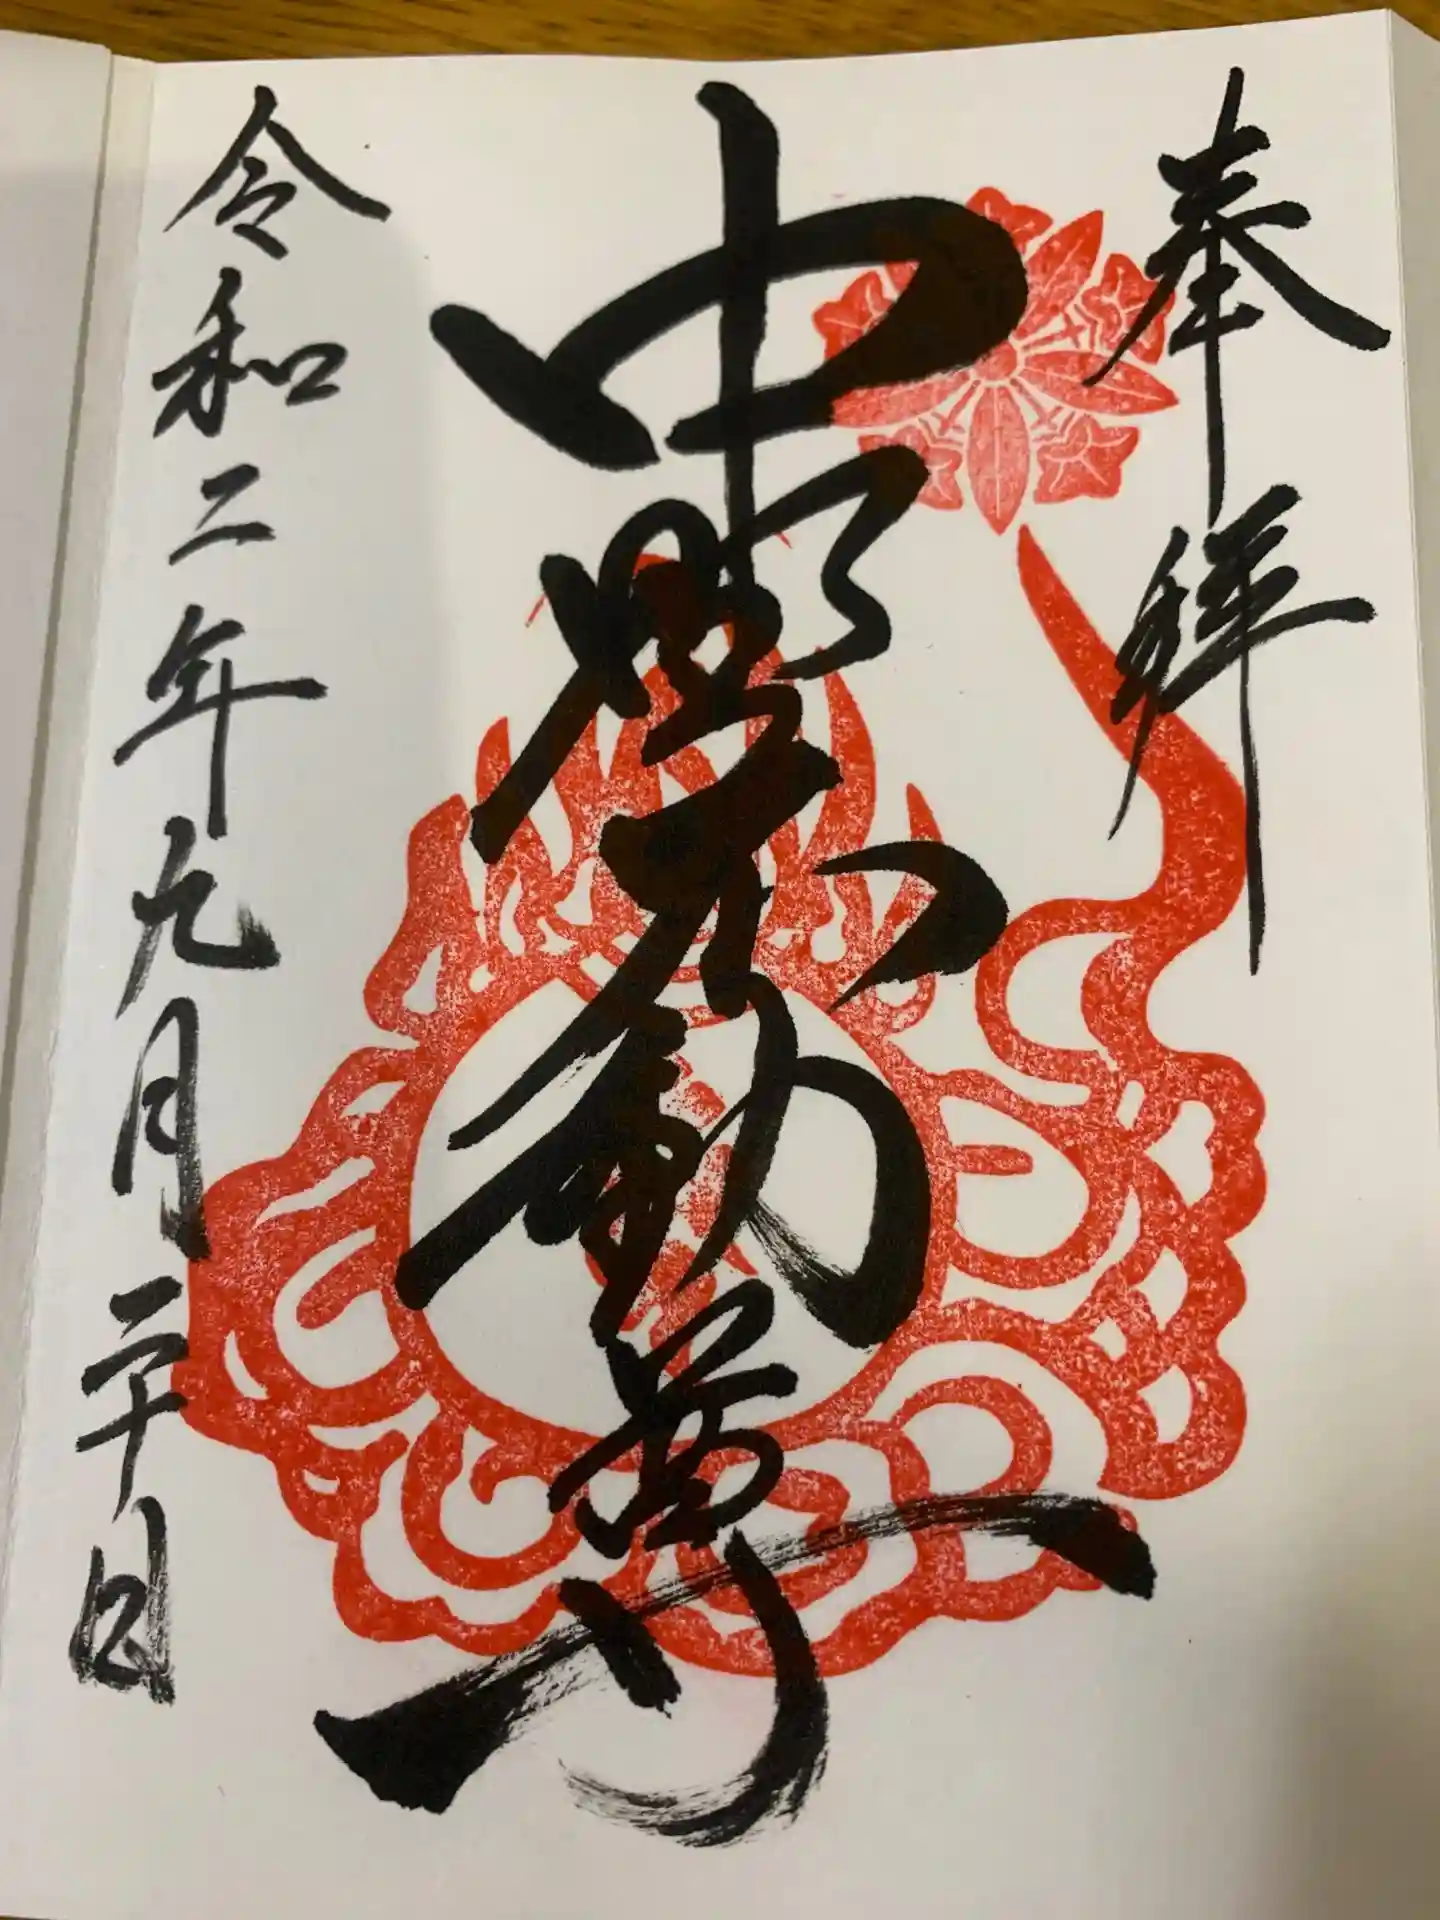 奉拝
中興不動尊
令和二年九月二十日